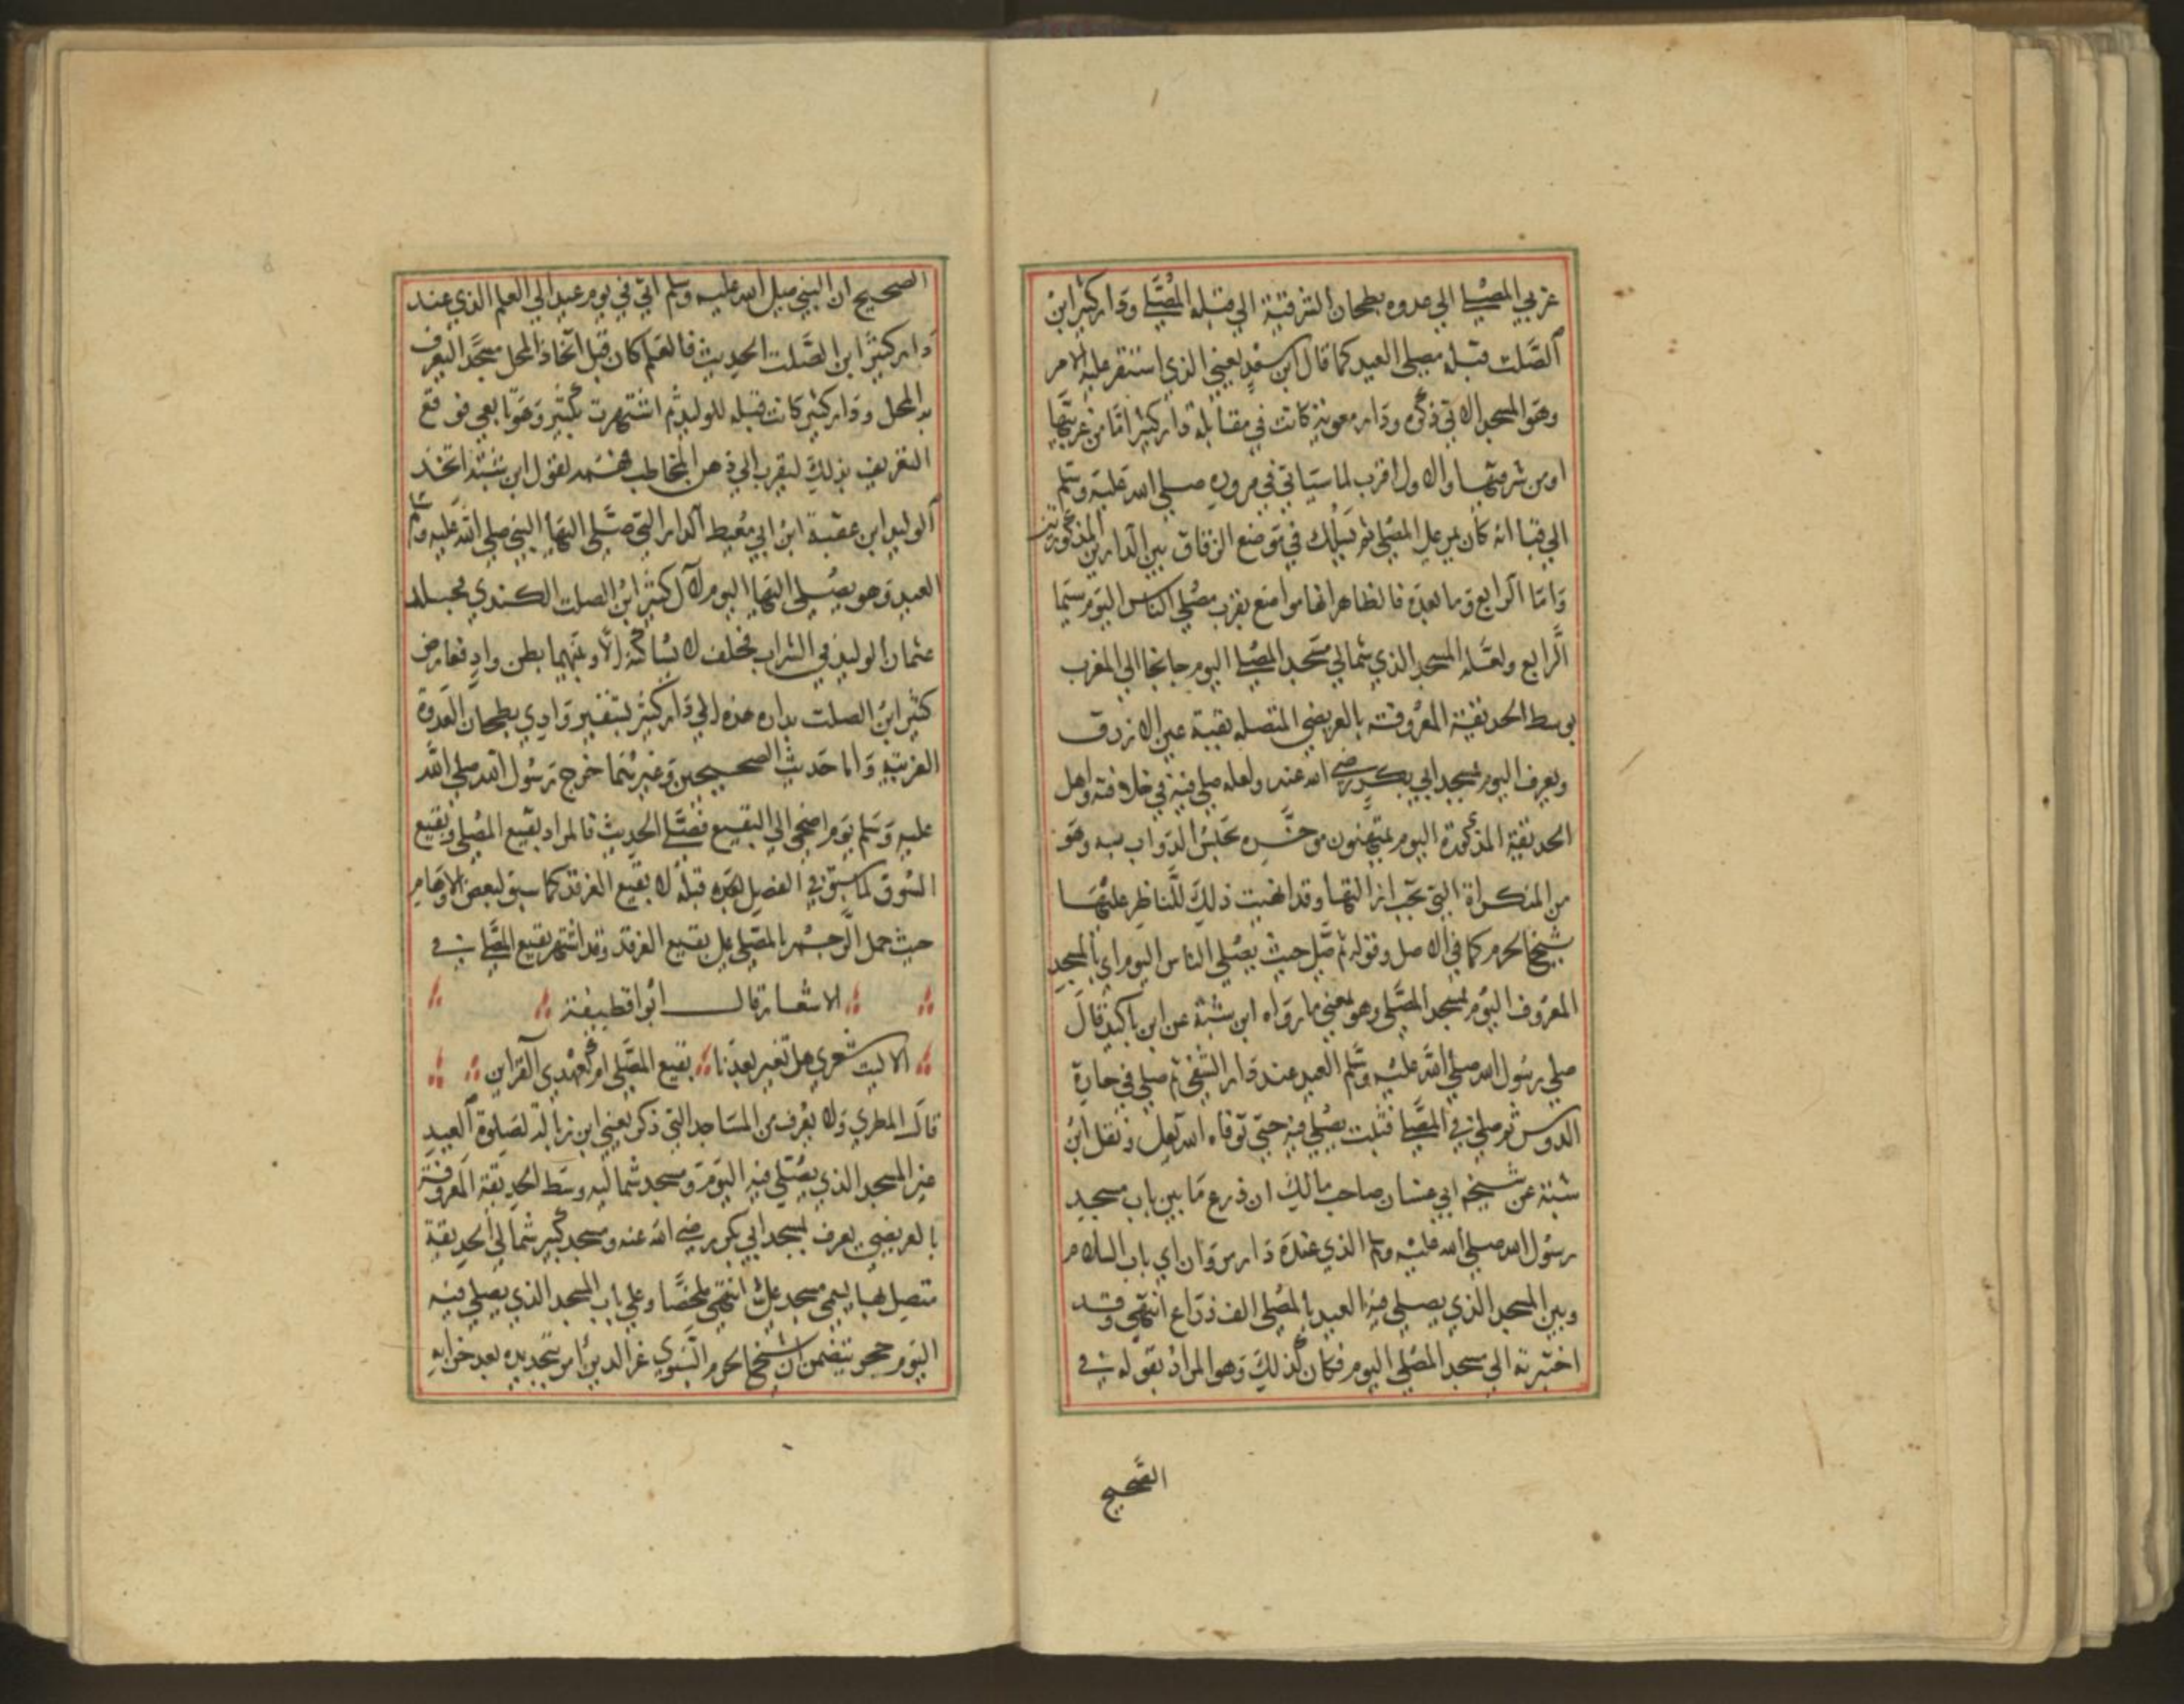 غربي المصلى الى عدوه بطحان الشرقية الى قبله المصلى ودار كثير ابن
الصلت قبلة مصلى العيد كما قال ابن سعد يعني الذي استقر عليه الامر
وهو المسجد الاتي ذكره ودار معوية كانت في مقابلة دار كثير اما من غربيها
او من شرقيها والاول اقرب لما سياتي في مروره صلى الله عليه وسلم
الى قبا انه كان يمر على المصلى ثم يسلك في موضع الزقاق بين الدارين المذكورتين
واما الرابع وما بعده فالظاهر انها مواضع بقرب مصلى الناس اليوم سيما
الرابع ولعله المسجد الذي شمالي مسجد المصلى اليوم جانحا الى المغرب
بوسط الحديقة المعروفة بالعريضي المتصلة بقبة عين الازرق
ويعرف اليوم بمسجد ابي بكر رضي الله عنه ولعله صلى فيه في خلافته واهل
الحديقة المذكورة اليوم يمتهنون موخره بحبس الدواب به وهو
من المنكراة التي تجب ازالتها وقد انهيت ذلك للناظر عليها
شيخ الحرم كما في الاصل وقوله ثم صلى حيث يصلي الناس اليوم اي بالمسجد
المعروف اليوم بمسجد المصلى وهو بمعنى ما رواه ابن شبة عن ابن باكيه قال
صلى رسول الله صلى الله عليه وسلم العيد عند دار الشفى ثم صلى في حارة
الدوس ثم صلى في المصلى فثبت يصلي فيه حتى توفاه الله تعالى ونقل ابن
شبة عن شيخه ابي غسان صاحب مالك ان ذرع ما بين باب مسجد
رسول الله صلى الله عليه وسلم الذي عنده دار مروان اي باب السلام
وبين المسجد الذي يصلي فيه العيد بالمصلى الف ذراع انتهى وقد
اختبرته الى مسجد المصلى اليوم فكان كذلك وهو المراد بقوله في
الصحيح
الصحيح ان النبي صلى الله عليه وسلم اتى في يوم عيد الى العلم الذي عند
دار كثير ابن الصلت الحديث فالعلم كان قبل اتخاذ المحل مسجدا ليعرف
به المحل ودار كثير كانت قبله للوليد ثم اشتهرت بكثير وهو تابعي فوقع
التعريف بذلك ليقرب الى ذهن المخاطب فهمه لقول ابن شبة اتخذ
الوليد ابن عقبة ابن ابي معيط الدار التي صلى اليها النبي صلى الله عليه وسلم
العيد وهو يصلى اليها اليوم لآل كثير ابن الصلت الكندي فجلد
عثمان الوليد في الشراب فحلف لا يساكنه الا وبينهما بطن واد فعارض
كثير ابن الصلت بداره هذه الى دار كثير بشفير وادي بطحان العدوة
الغربية واما حديث الصحيحين وغيرهما خرج رسول الله صلى الله
عليه وسلم يوم اضحى الى البقيع فصلى الحديث فالمراد بقيع المصلى وبقيع
السوق كما سبق في الفصل قبله لا بقيع الغرقد كما سبق لبعض الاوهام
حيث حمل الرجم بالمصلى على بقيع الغرقد وقد اشتهر بقيع المصلى في
الاشعار قال ابو اقطيفة
الا ليت شعري هل تغير بعدنا بقيع المصلى ام كعهدي القراين
قال المطري ولا يعرف من المساجد التي ذكر يعني ابن زبالة لصلوة العيد
غير المسجد الذي يصلى فيه اليوم ومسجد شماليه وسط الحديقة المعروفة
بالعريضي يعرف بمسجد ابي بكر رضي الله عنه ومسجد كبير شمالي الحديقة
متصل بها يسمى مسجد علي انتهى ملخصا وعلى باب المسجد الذي يصلى فيه
اليوم حجر يتضمن ان شيخ الحرم النبوي عز الدين امر بتجديده بعد خرابه